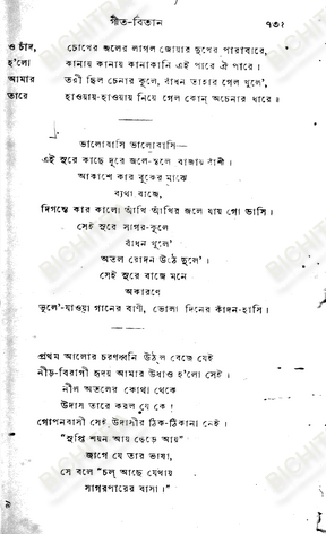 গীত-বিতান ৭৩১
ও চাঁদ, চোখের জলের লাগল জোয়ার দুখের পারাবারে,
হ'লো কানায় কানায় কানাকানি এই পারে ঐ পারে।
আমার তরী ছিল চেনার কূলে, বাঁধন তাহার গেল খুলে',
তারে হাওয়ায়-হাওয়ায় নিয়ে গেল কোন্ অচেনার ধারে॥
ভালোবাসি ভালোবাসি—
এই সুরে কাছে দূরে জলে-স্থলে বাজায় বাঁশী।
আকাশে কার বুকের মাঝে
ব্যথা বাজে,
দিগন্তে কার কালো আঁখি আঁখির জলে যায় গো ভাসি।
সেই সুরে সাগর-কূলে
বাঁধন খুলে'
অতল রোদন উঠে দুলে'।
সেই সুরে বাজে মনে
অকারণে
ভুলে'-যাওয়া গানের বাণী, ভোলা দিনের কাঁদন-হাসি।
প্রথম আলোর চরণধ্বনি উঠল বেজে যেই
নীড়-বিরাগী হৃদয় আমার উধাও হ'লো সেই।
নীল অতলের কোথা থেকে
উদাস তারে করল যে কে!
গোপনবাসী সেই উদাসীর ঠিক-ঠিকানা নেই।
"সুপ্তি শয়ন আয় ছেড়ে আয়"
জাগে যে তার ভাষা,
সে বলে "চল্ আছে যেথায়
সাগরপারের বাসা।"
BICHITRA